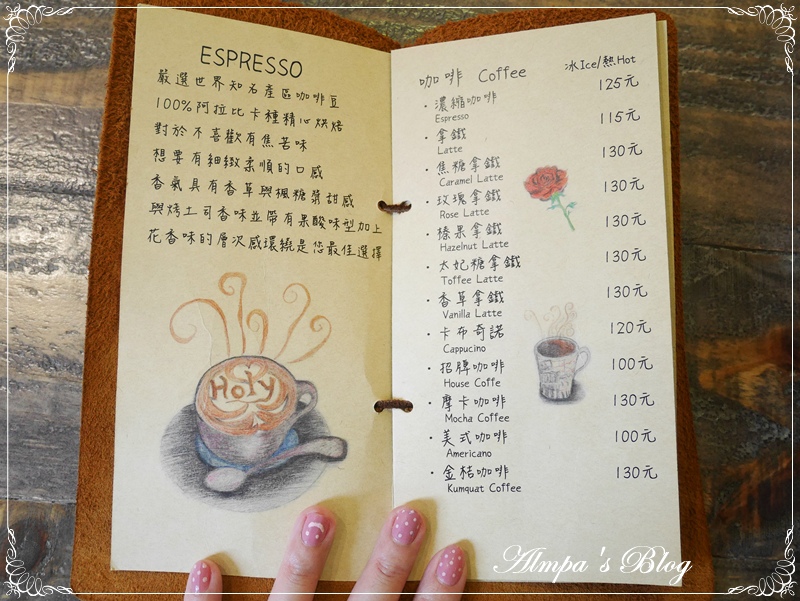 ESPRESSO
嚴選世界知名產區咖啡豆
100%阿拉比卡種精心烘焙
對於不喜歡有焦苦味
想要有細緻柔順的口感
香氣具有香草與楓糖漿甜感
與烤土司香味並帶有果酸味型加上
花香味的層次感環繞是您最佳選擇
Holy
咖啡 Coffee 冰Ice/熱Hot
・濃縮咖啡 125元
Espresso
・拿鐵 115元
Latte
・焦糖拿鐵 130元
Caramel Latte
・玫瑰拿鐵 130元
Rose Latte
・榛果拿鐵 130元
Hazelnut Latte
・太妃糖拿鐵 130元
Toffee Latte
・香草拿鐵 130元
Vanilla Latte
・卡布奇諾 120元
Cappucino
・招牌咖啡 100元
House Coffe
・摩卡咖啡 130元
Mocha Coffee
・美式咖啡 100元
Americano
・金桔咖啡 130元
Kumquat Coffee
Almpa's Blog